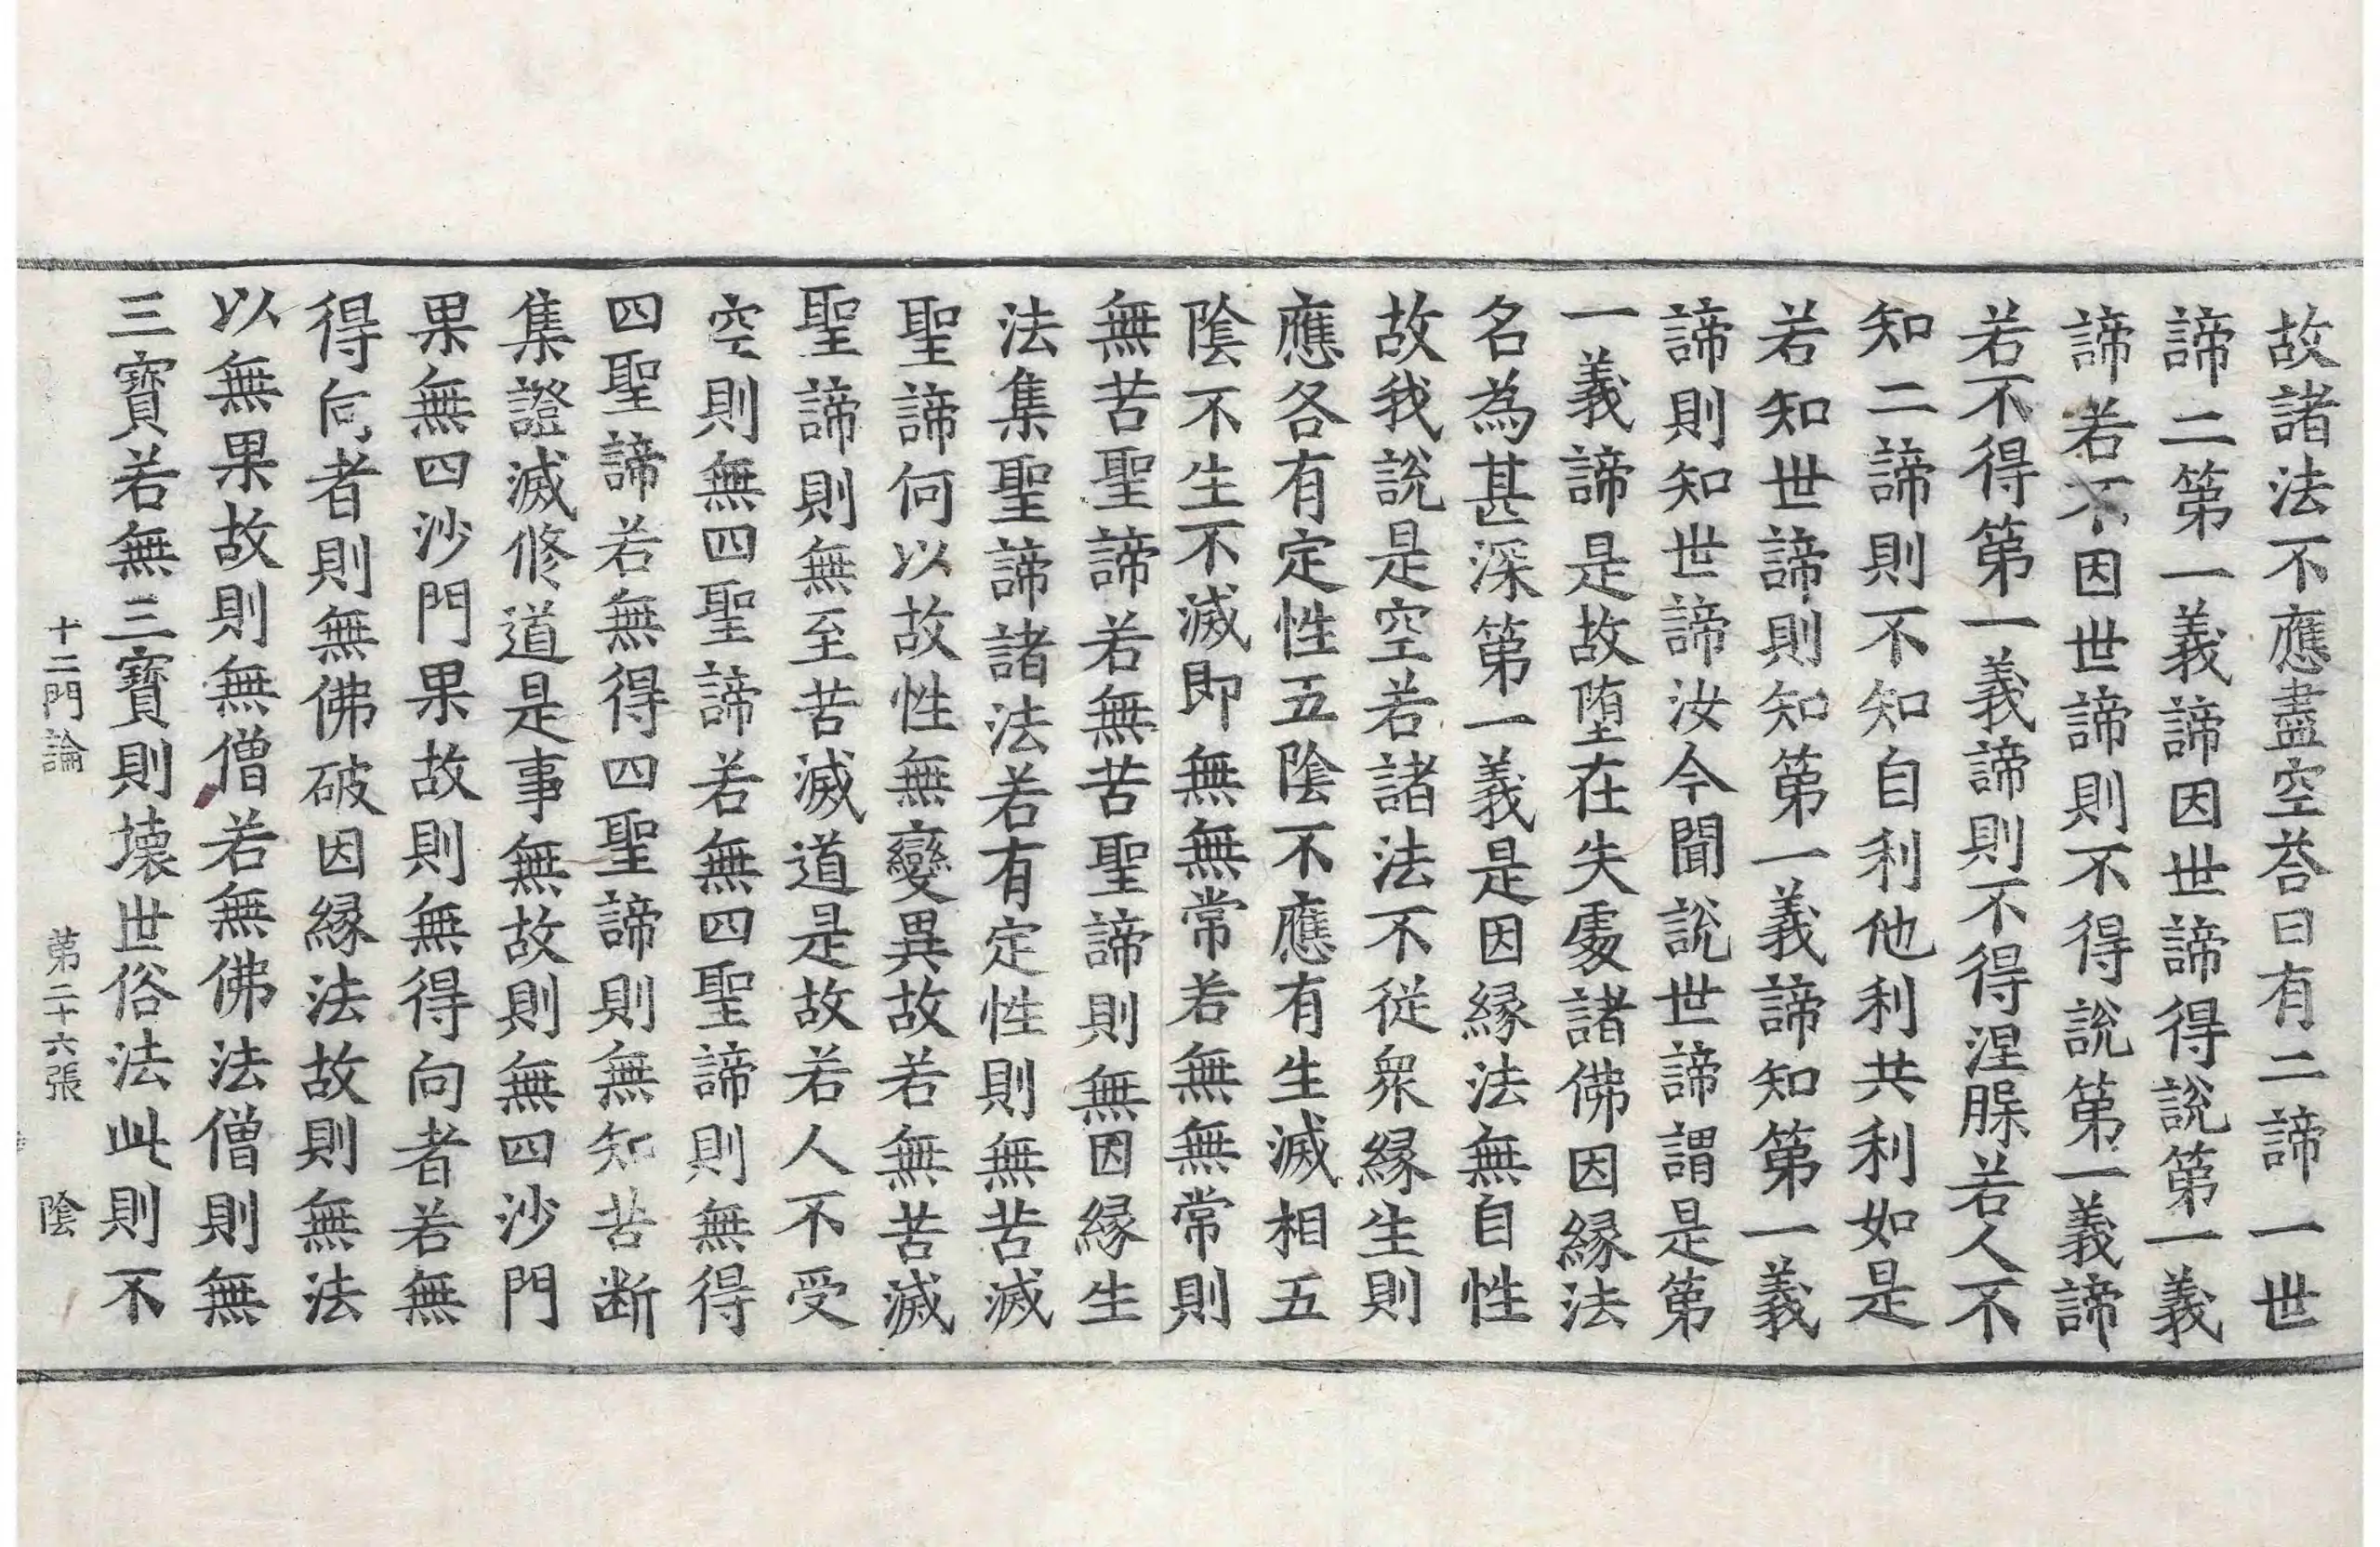 故諸法不應盡空荅曰有二諦一世
諦二第一義諦因世諦得說第一義
諦若不因世諦則不得說第一義諦
若不得第一義諦則不得涅脲若人不
知二諦則不知自利他利共利如是
若知世諦則知第一義諦知第一義
諦則知世諦汝今聞說世諦謂是第
一義諦是故堕在失處諸佛因緣法
名為甚深第一義是因緣法無自性
故我說是空若諸法不從衆緣生則
應各有定性五陰不應有生滅相五
陰不生不滅即無無常若無無常則
無苦聖諦若無苦聖諦則無因緣生
法集聖諦諸法若有定性則無苦滅
聖諦何以故性無變異故若無苦滅
聖諦則無至苦滅道是故若人不受
空則無四聖諦若無四聖諦則無得
四聖諦若無得四聖諦則無知苦断
集證滅修道是事無故則無四沙門
果無四沙門果故則無得向者若無
得向者則無佛破因緣法故則無法
以無果故則無僧若無佛法僧則無
三寶若無三寶則壊世俗法此則不
十二門論 第二十六張 陰